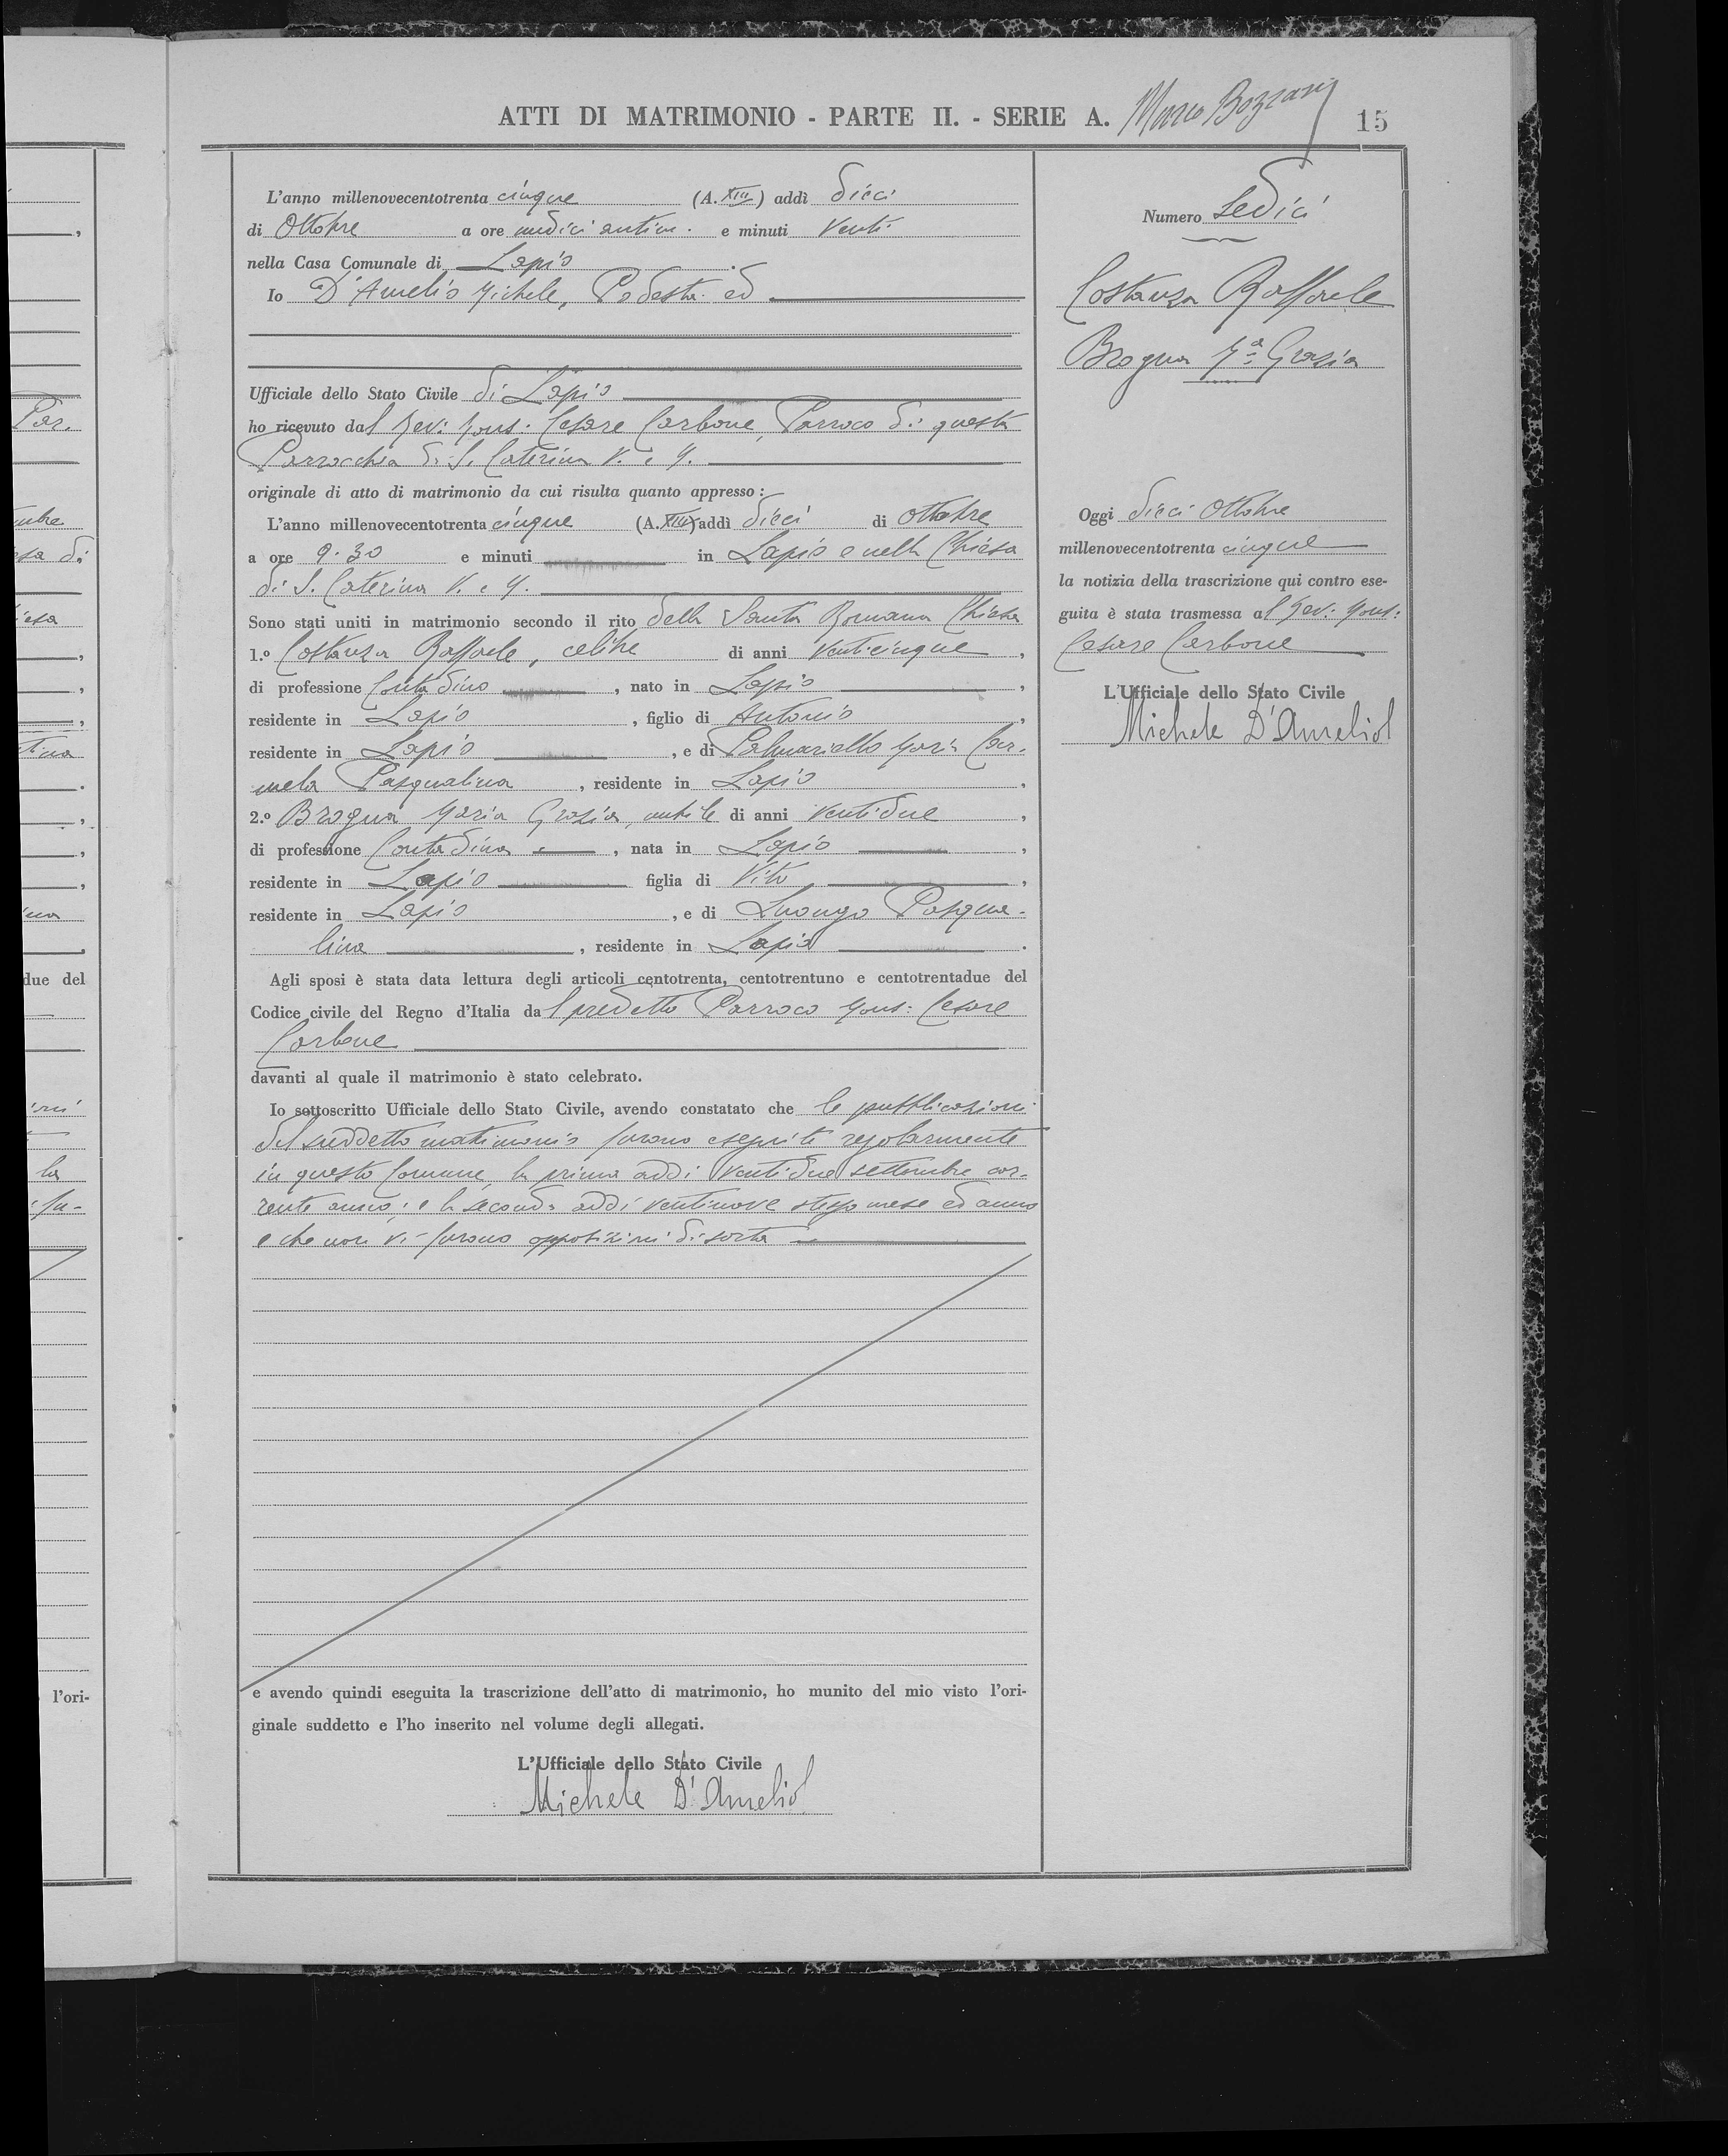 ATTI DI MATRIMONIO - PARTE II. - SERIE A. Marco Bozzaris 15
L'anno millenovecentotrenta cinque (A. XIII) addì dieci
di Ottobre a ore undici antim. e minuti venti
nella Casa Comunale di Lapio.
Io D'Amelio Michele, Podestà ed
Ufficiale dello Stato Civile di Lapio
ho ricevuto dal Rev: Mons: Cesare Carbone, Parroco di questa
Parrocchia di S. Caterina V. e M.
originale di atto di matrimonio da cui risulta quanto appresso:
L'anno millenovecentotrenta cinque (A. XIII) addì dieci di ottobre
a ore 9.30 e minuti in Lapio e nella Chiesa
di S. Caterina V. e M.
Sono stati uniti in matrimonio secondo il rito della Santa Romana Chiesa
1.º Costanza Raffaele, celibe di anni venticinque,
di professione Contadino, nato in Lapio,
residente in Lapio, figlio di Antonio,
residente in Lapio, e di Palmariello Maria Car-
mela Pasqualina, residente in Lapio,
2.º Brogna Maria Grazia, nubile di anni ventidue,
di professione Contadina, nata in Lapio,
residente in Lapio figlia di Vito,
residente in Lapio, e di Luongo Pasqua-
lina, residente in Lapio.
Agli sposi è stata data lettura degli articoli centotrenta, centotrentuno e centotrentadue del
Codice civile del Regno d'Italia dal predetto Parroco Mons: Cesare
Carbone
davanti al quale il matrimonio è stato celebrato.
Io sottoscritto Ufficiale dello Stato Civile, avendo constatato che le pubblicazioni
del suddetto matrimonio furono eseguite regolarmente
in questo Comune, la prima addì ventidue settembre cor-
rente anno; e la seconda addì ventinove stesso mese ed anno
e che non vi furono opposizioni di sorta
e avendo quindi eseguita la trascrizione dell'atto di matrimonio, ho munito del mio visto l'ori-
ginale suddetto e l'ho inserito nel volume degli allegati.
L'Ufficiale dello Stato Civile
Michele D'Amelio
Numero Sedici
Costanza Raffaele
Brogna Mª Grazia
Oggi dieci Ottobre
millenovecentotrenta cinque
la notizia della trascrizione qui contro ese-
guita è stata trasmessa al Rev: Mons:
Cesare Carbone
L'Ufficiale dello Stato Civile
Michele D'Amelio